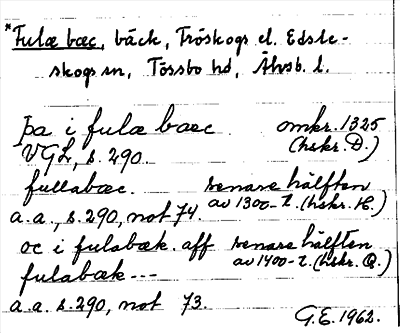 *Fulæ bæc, bäck, Fröskogs el. Edsle-
skogs sn, Tössbo hd, Älvsb. l.
þa i fulæ bæc omkr. 1325
VGL, s. 290. (hskr. D.)
fullabæc. senare hälften
a.a., s. 290, not 74. av 1300-t. (hskr. H.)
oc i fulabæk. aff senare hälften
fulabæk --- av 1400-t. (hskr. Q.)
a.a. s. 290, not 73.
G.E. 1962.